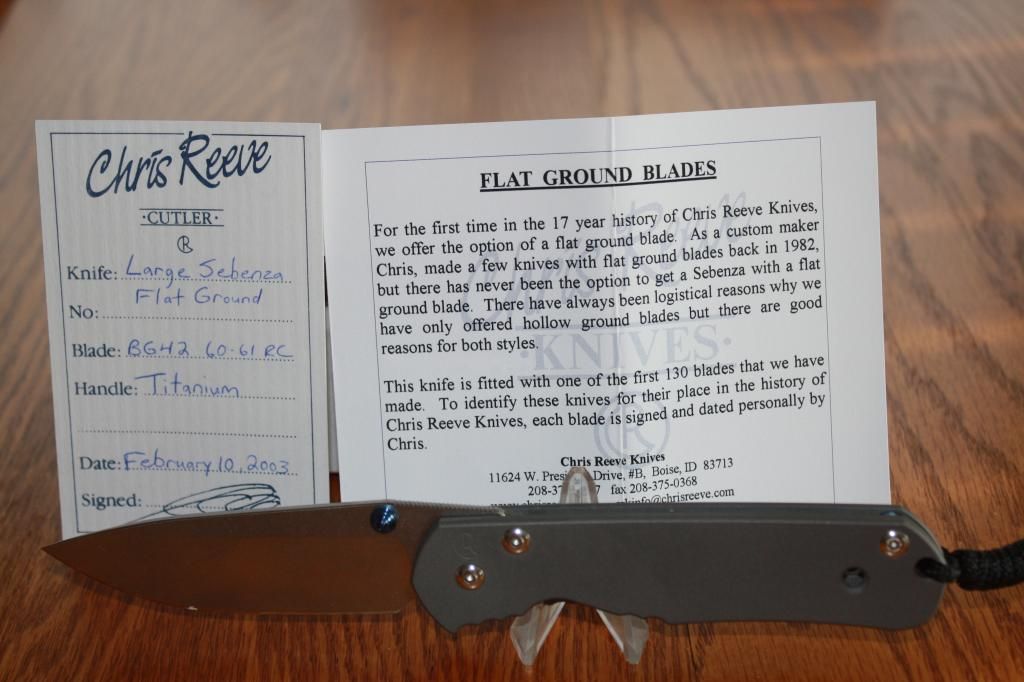 Chris Reeve
·CUTLER·
Knife: Large Sebenza
Flat Ground
No:
Blade: BG42 60-61 RC
Handle: Titanium
Date: February 10, 2003
Signed:
FLAT GROUND BLADES
For the first time in the 17 year history of Chris Reeve Knives,
we offer the option of a flat ground blade. As a custom maker
Chris, made a few knives with flat ground blades back in 1982,
but there has never been the option to get a Sebenza with a flat
ground blade. There have always been logistical reasons why we
have only offered hollow ground blades but there are good
reasons for both styles.
This knife is fitted with one of the first 130 blades that we have
made. To identify these knives for their place in the history of
Chris Reeve Knives, each blade is signed and dated personally by
Chris.
Chris Reeve Knives
11624 W. Drive, #B, Boise, ID 83713
fax 208-375-0368
Chris Reeve
·KNIVES·